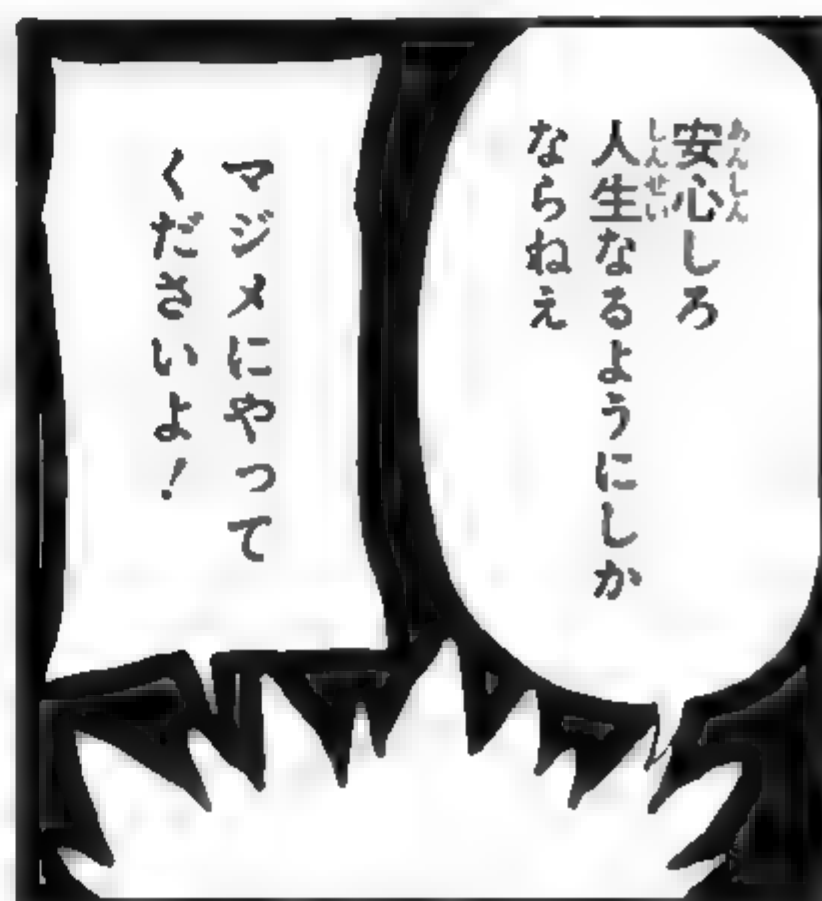 安心しろ
人生なるようにしか
ならねえ
マジメにやって
くださいよ！